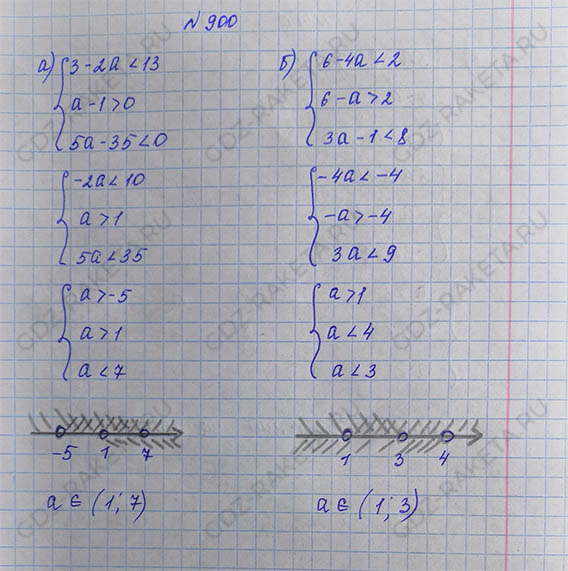 N 900
а) { 3-2a<13
a-1>0
5a-35<0
{ -2a<10
a>1
5a<35
{ a>-5
a>1
a<7
-5 1 7
a ∈ (1; 7)
б) { 6-4a<2
6-a>2
3a-1<8
{ -4a<-4
-a>-4
3a<9
{ a>1
a<4
a<3
1 3 4
a ∈ (1; 3)
GDZ-RAKETA.RU